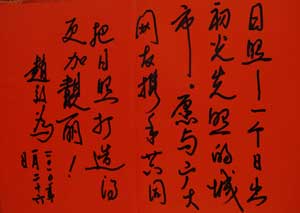 日照—一个日出
初光先照的城
市。愿与广大
网友携手共同
把日照打造得
更加靓丽！
二〇一〇年
一月二十六
日